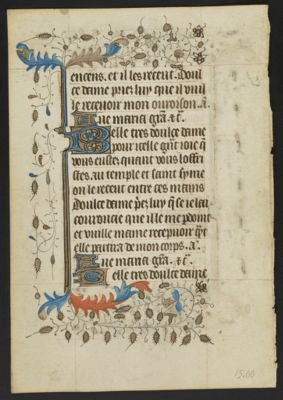 encens. et il les receut. Doul
ce dame pries luy que il vuil
le recevoir mon ouroison. a.
Aue maria gra. &c.
Belle tres doulce dame
pour icelle grãt ioie q̃
vous eustes quant vous loffri
stes au temple et saint syme
on le receut entre ces mains
Doulce dame pries luy q̃
que il le me pdoint
et vuille mame recepuoir q̃t
elle partira de mon corps. a.
Aue maria gra. &c.
Belle tres doulce dame
15.00